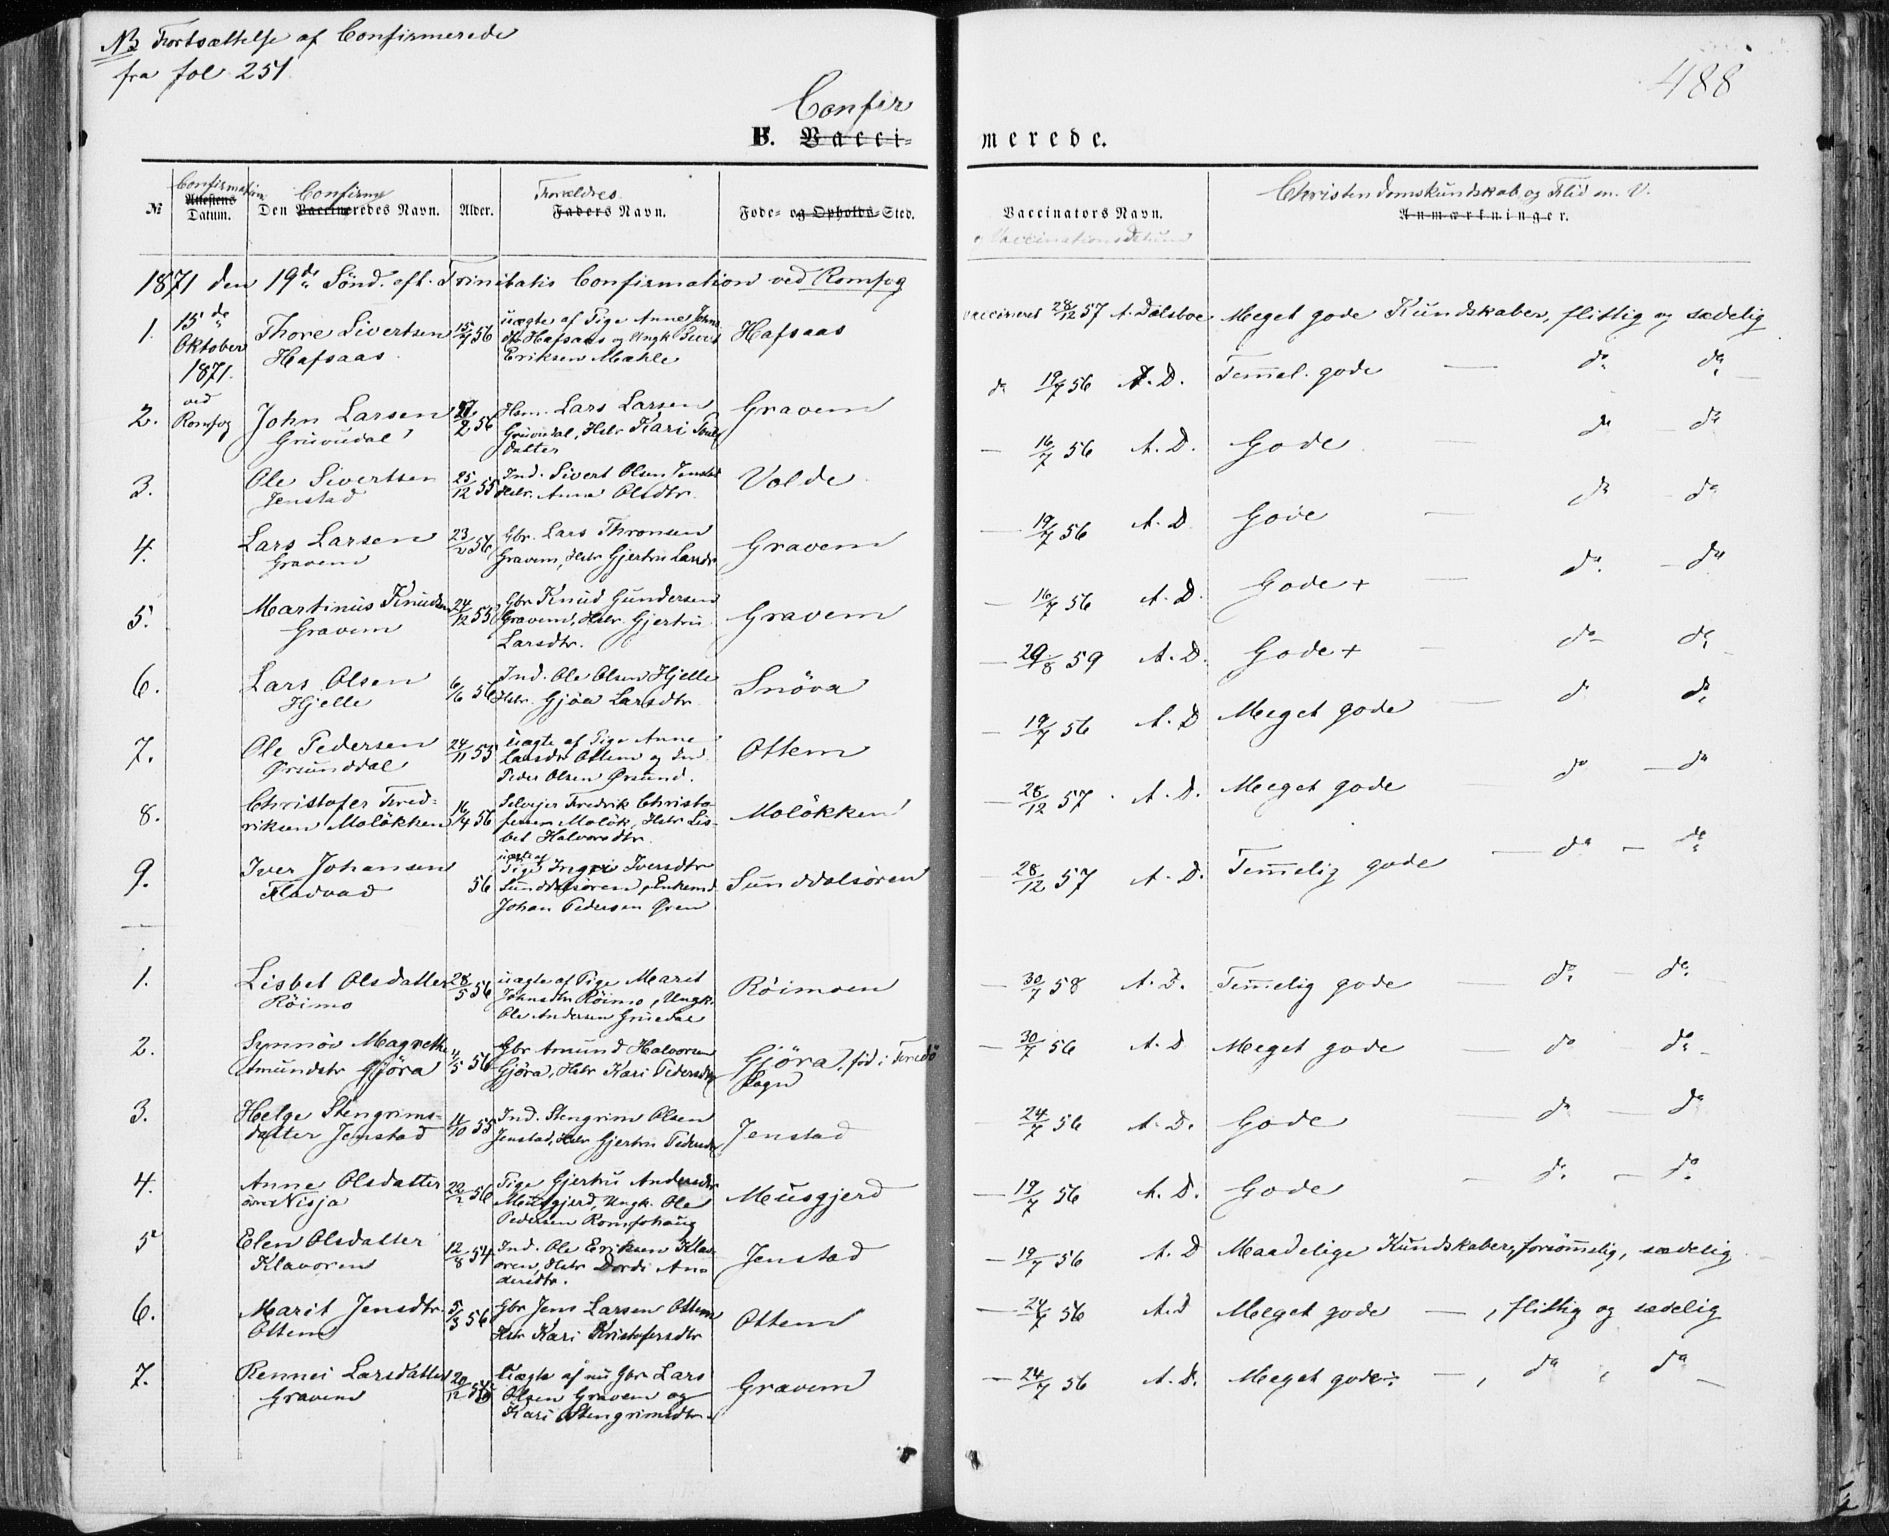 NB Fortsættelse af Confirmerede
fra fol 251.
488
Confir
B. Vacci=
merede.
№
Confirmation
Attestens
Datum.
Confirme
Den Vaccineredes Navn.
Alder.
Forældres
Faders Navn.
Føde= og Opholds=Sted.
Vaccinators Navn.
Vaccinationsdatum
Christendomskundskab og Flid m. V.
Anmærkninger.
1871 den 19de Sönd. eft. Trinitatis Confirmation ved Romfog
1. 15de Oktober 1871. ved Romfog
Thore Sivertsen
Hafsaas
15/7 56
uægte af Pige Anne Johns
dtr Hafsaas og Ungk Sivert
Eriksen Mæhle
Hafsaas
vaccineret 28/12 57 A. Dalsboe
Meget gode Kundskaber, flittig og sædelig
2.
John Larsen
Gruvudal
27/2 56
Hm. Lars Larsen
Gruvudal, Hstr Kari
datter
Gravem
do 19/7 56 A. D.
Temmel. gode — do do
3.
Ole Sivertsen
Jenstad
25/12 55
Ind. Sivert Olsen Jenstad
Hstr. Anne Olsdtr.
Volde
— 16/7 56 A. D.
Gode — do — do
4.
Lars Larsen
Gravem
23/2 56
Gbr. Lars Thronsen
Gravem, Hstr Gjertru Larsdtr
Gravem
— 19/7 56 A. D
Gode — do — do
5.
Martinus Knudsen
Gravem
24/12 55
Gbr Knud Gundersen
Gravem, Hstr. Gjertru
Larsdtr.
Gravem
— 16/7 56 A. D.
Gode + — do — do
6.
Lars Olsen
Hjelle
6/6 56
Ind. Ole Olsen Hjelle
Hstr. Gjöa Larsdtr.
Snöva
— 29/8 59 A. D.
Gode + — do do
7.
Ole Pedersen
Ørsunddal
24/11 55
Uægte af Pige Anne
Larsdtr Ottem og Ind
Peder Olsen Ørsund.
Ottem
— 19/7 56 A. D
Meget gode — do do
8.
Christofer Fred-
riksen Molökken
16/4 56
Selvejer Fredrik Christo-
fersen Molök, Hstr Lis-
bet Halvorsdtr.
Molökken
— 28/12 57. A. D.
Meget gode — do — do
9.
Iver Johansen
Fladvad
56
uægte af
Pige Ingri Iversdtr
Sunddalsøren, Enkemd
Johan Pedersen Øren
Sunddalsören
— 28/12 57 A. D.
Temmelig gode — do — do
1.
Lisbet Olsdatter
Röimo
28/5 56
uægte af Pige Marit
Johnsdtr Röimo, Ungk.
Ole Andersen Gruedal
Röimoen
— 30/7 58 A. D.
Temmelig gode — do — do
2.
Synnöv Magrethe
Amundstr Gjöra
4/5 56
Gbr Amund Halvorsen
Gjöra, Hstr Kari Pedersdtr
Gjöra, föd i Fredö
Sogn
— 30/7 56 A. D
Meget gode — do do
3.
Helge Stengrims-
datter Jenstad
4/10 55
Ind. Stengrim Olsen
Jenstad, Hstr Gjertru Pedersdtr
Jenstad
24/7 56 A. D.
Gode — do — do
4.
Anne Olsdatter
Nisja
22/2 56
Pige Gjertru Andersdtr
Musgjerd, Ungk. Ole
Pedersen Romfohaug
Musgjerd
— 19/7 56 A. D.
Gode — do — do
5
Elen Olsdatter
Klavoren
12/8 54
Ind. Ole Eriksen Klav-
oren, Hstr Dordi An-
dersdtr.
Jenstad
— 19/7 56 A. D
Maadelige Kundskaber, forsömmelig, sædelig
6.
Marit Jensdtr.
Ottem
5/3 56
Gbr Jens Larsen Ottem
Hstr Kari Kristofersdtr
Ottem
— 24/7 56 A. D
Meget gode — , flittig og sædelig
7.
Rennei Larsdatter
Gravem
20/12 55
Uægte af nu Gbr Lars
Olsen Gravem og
Kari Stengrimsdtr
Gravem
— 24/7 56 A. D.
Meget gode — , do , do